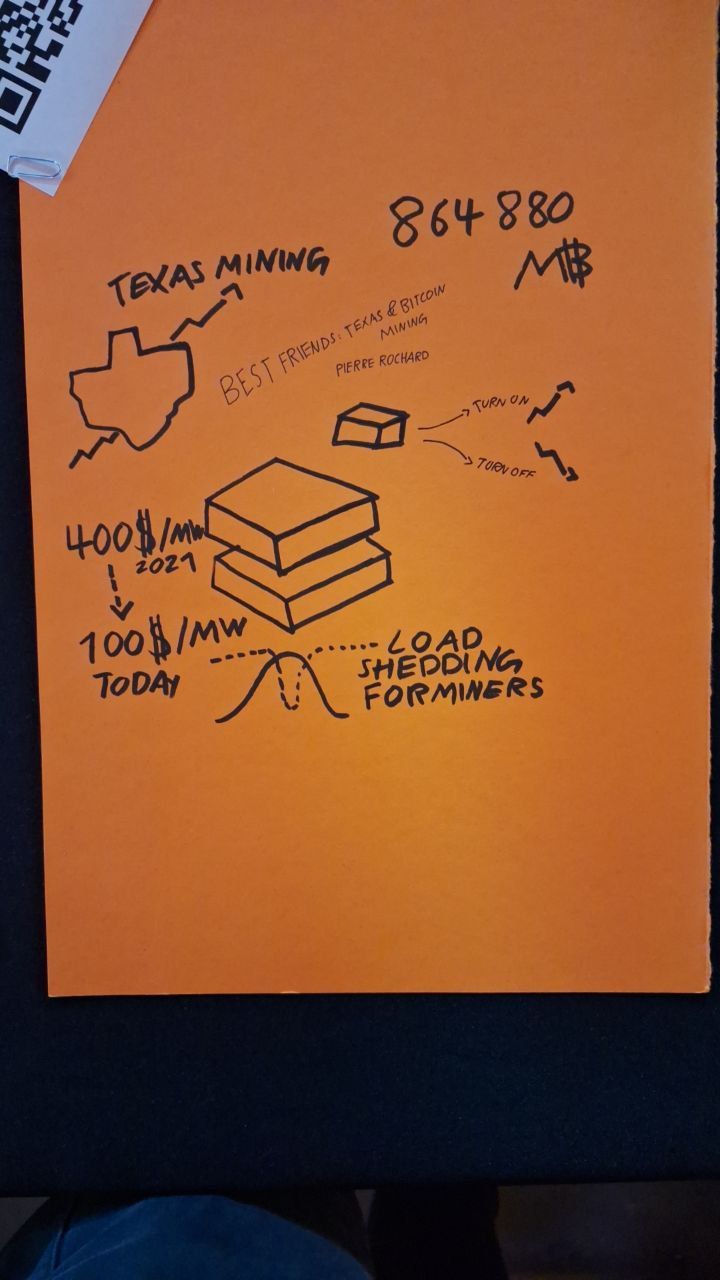 864 880
M₿
TEXAS MINING
BEST FRIENDS: TEXAS & BITCOIN
MINING
PIERRE ROCHARD
TURN ON
TURN OFF
400$/MW
2021
100$/MW
TODAY
LOAD
SHEDDING
FOR MINERS